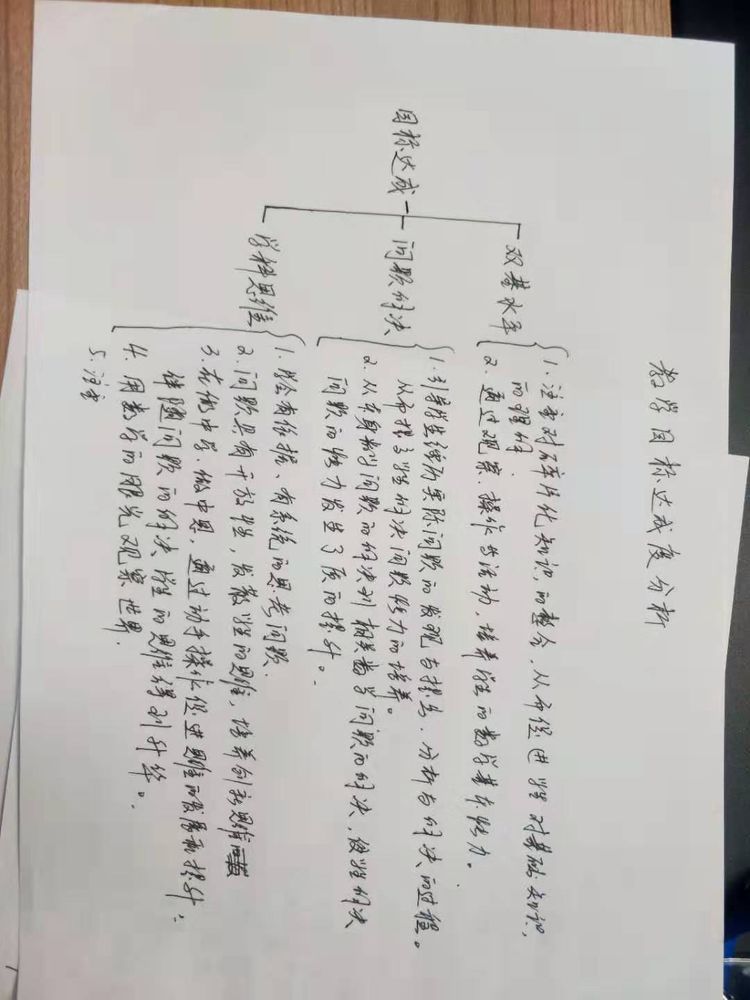 教学目标达成度分析
目标达成
双基水平
1. 注重对碎片化知识的整合，从而促进学生对基础知识，
的理解；
2. 通过观察、操作与活动，培养学生的数学基本能力。
问题解决
1. 引导学生经历实际问题的发现与提出、分析与解决的过程。
从而提高学生解决问题能力的培养。
2. 从本身的问题的解决到相关数学问题的解决，使学生解决
问题的能力发生了质的提升。
学科思维
1. 学会有依据、有系统的思考问题.
2. 问题具有开放性，发散学生的思维，培养创新思维
3. 在做中学、做中思，通过动手操作促进思维的发展和提升；
伴随问题的解决学生的思维得到升华。
4. 用数学的眼光观察世界.
5. 注重